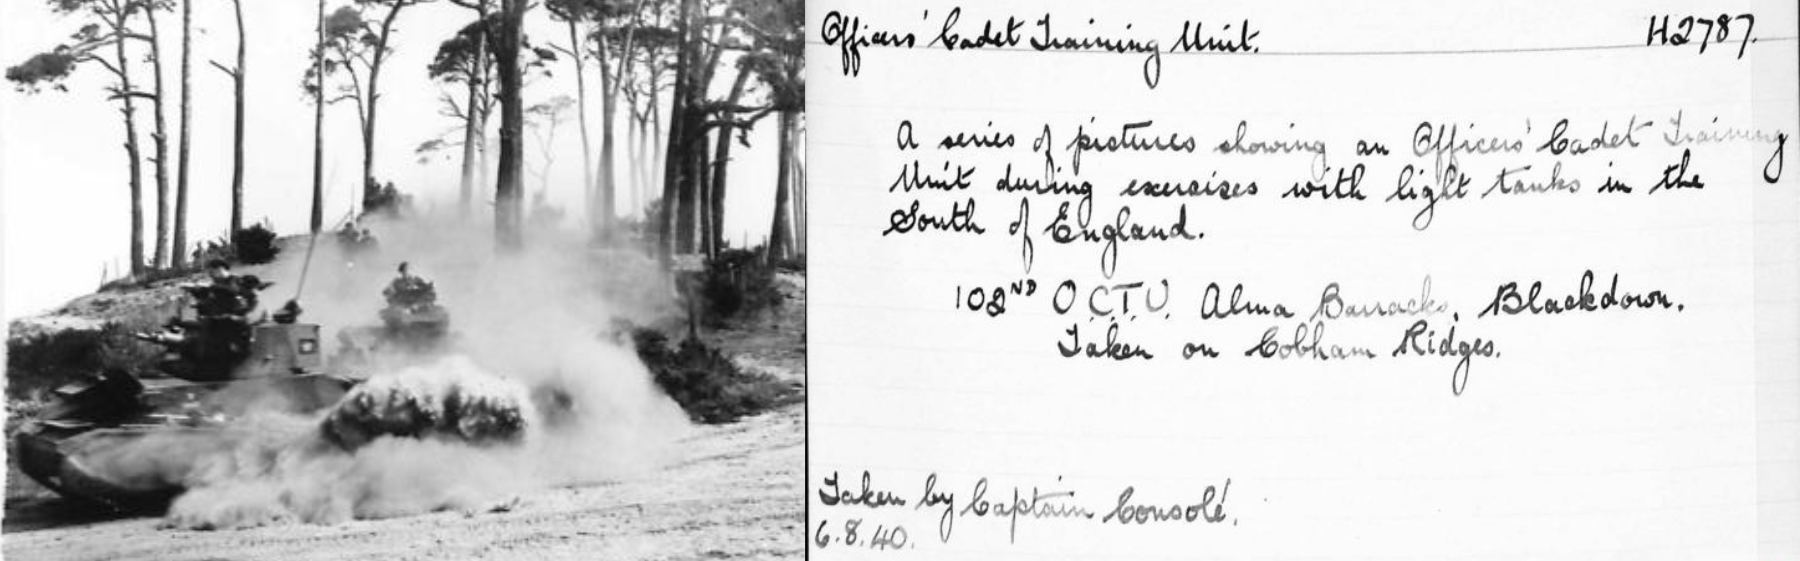 Officers' Cadet Training Unit. H2787.
A series of pictures showing an Officers' Cadet Training
Unit during exercises with light tanks in the
South of England.
102ND O.C.T.U. Alma Barracks, Blackdown.
Taken on Cobham Ridges.
Taken by Captain Consolé.
6.8.40.